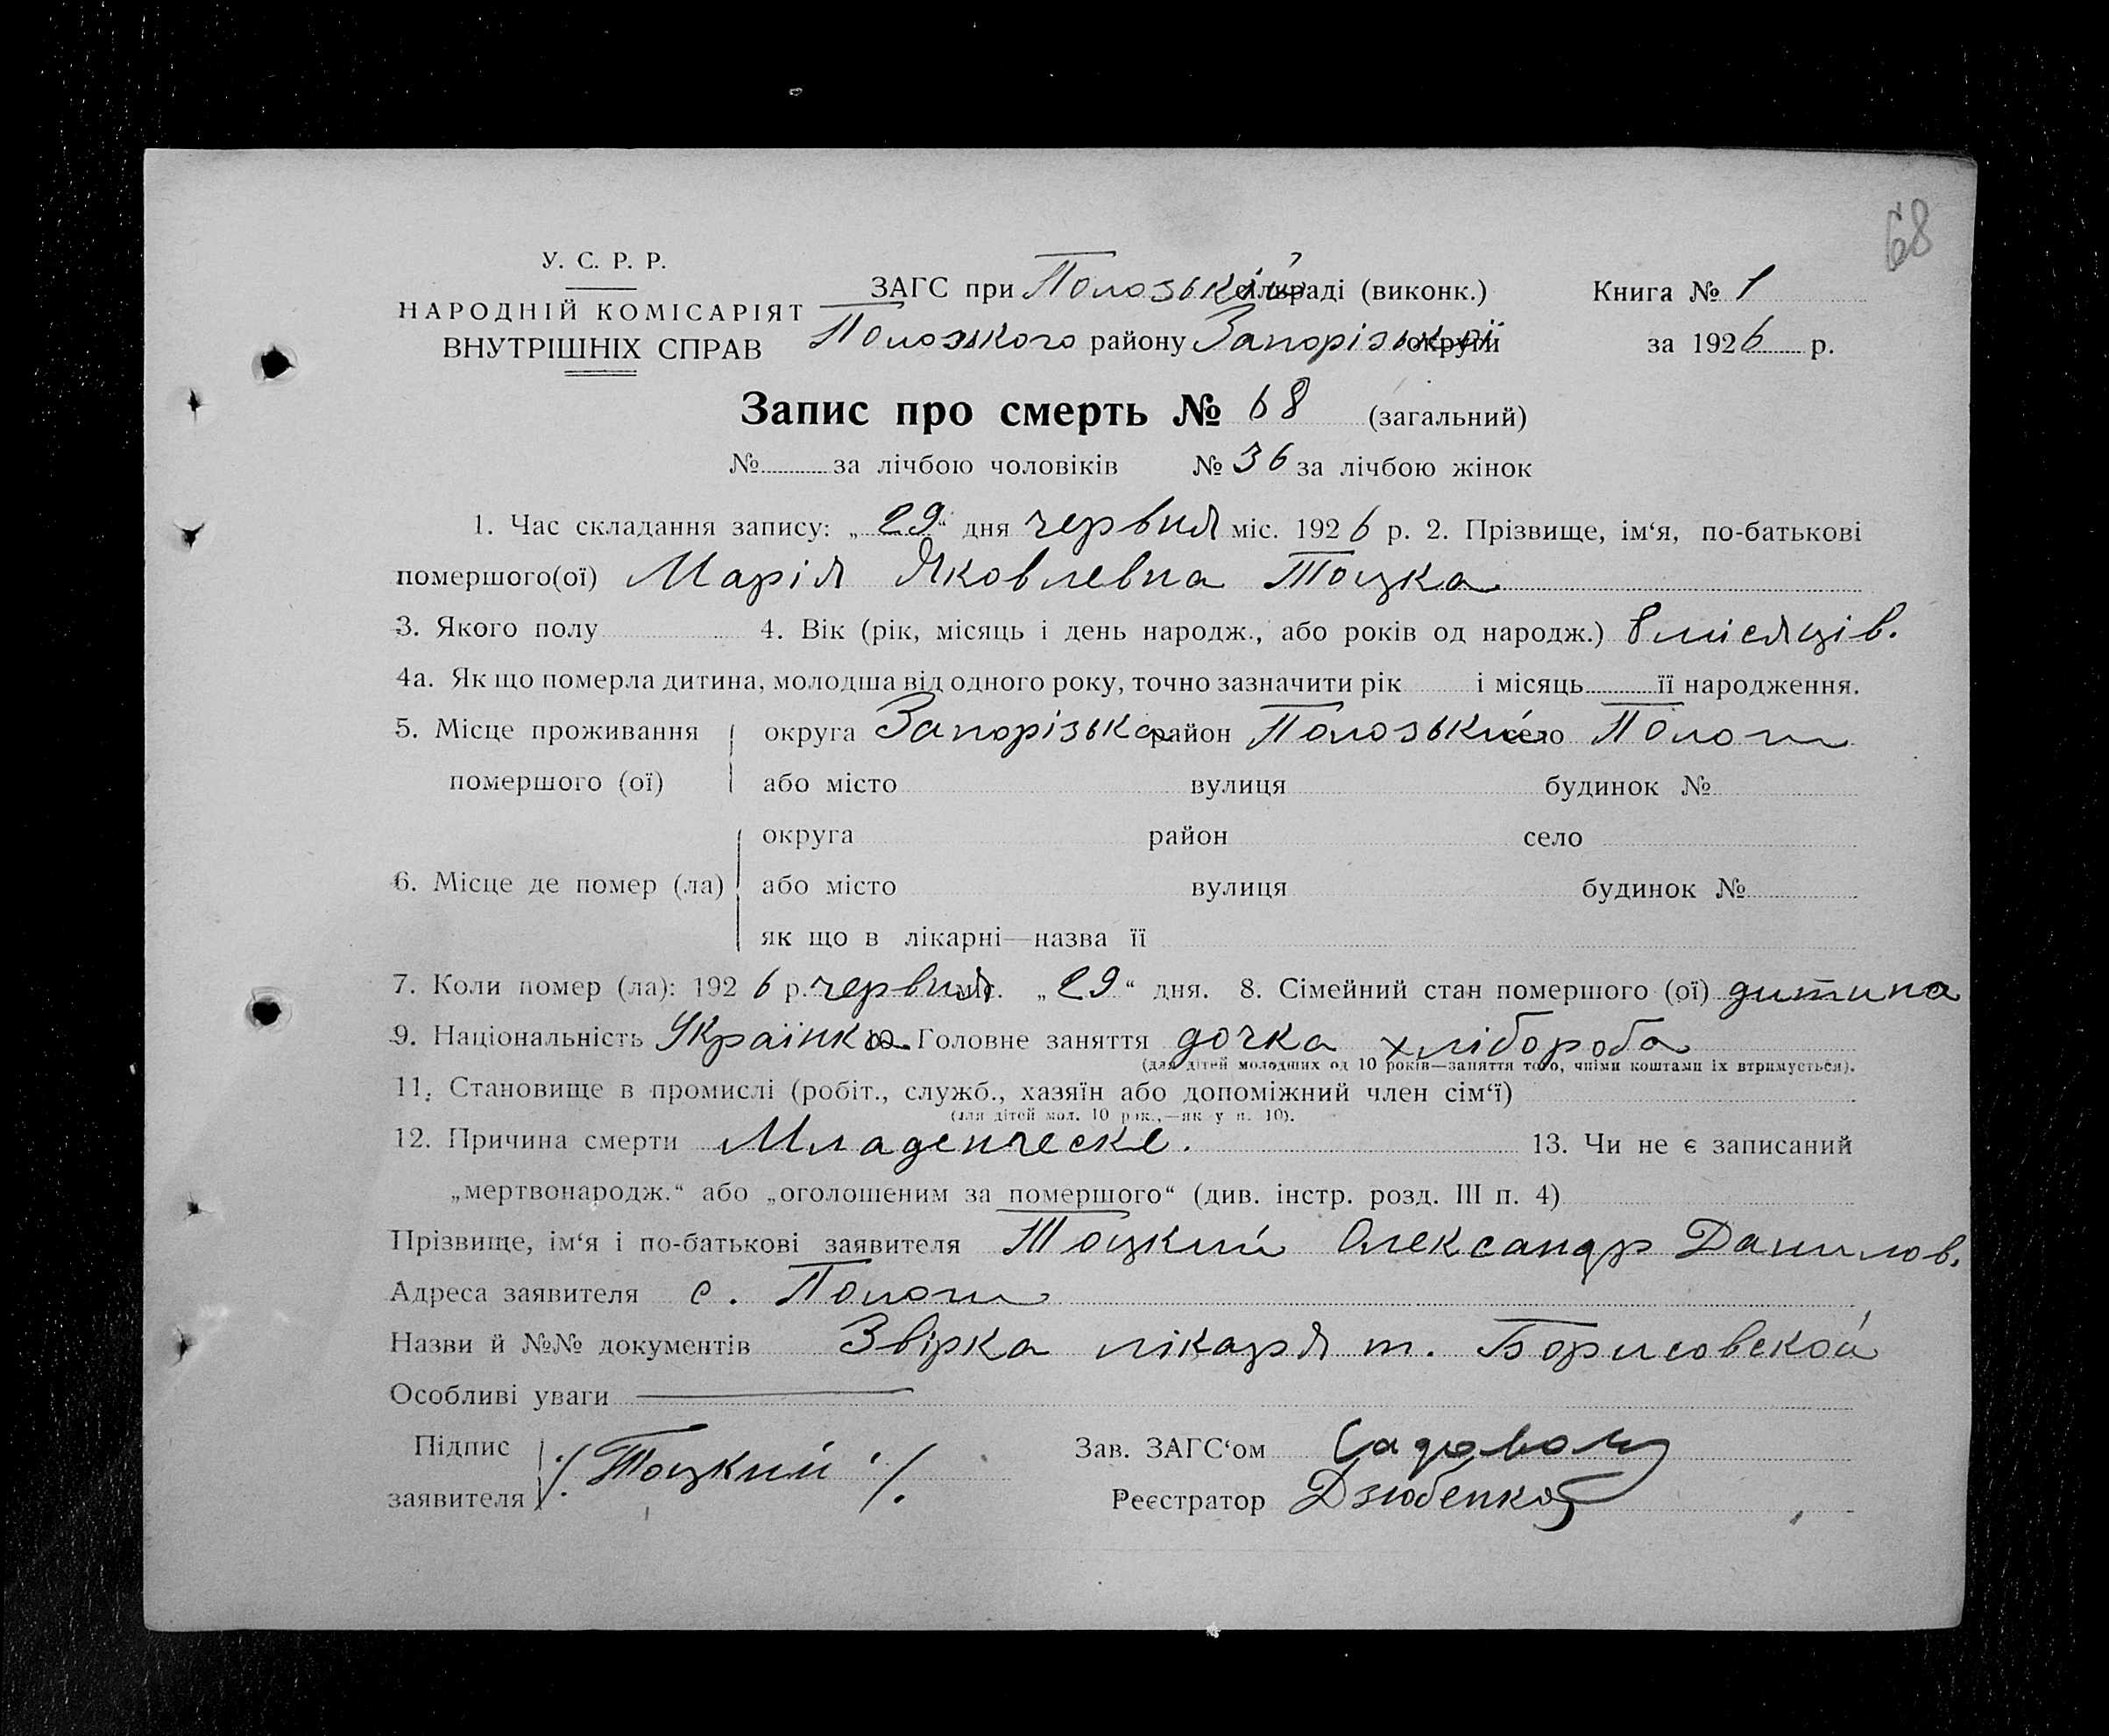 68
У. С. Р. Р.
НАРОДНІЙ КОМІСАРІЯТ
ВНУТРІШНІХ СПРАВ
ЗАГС при Полозькій сільраді (виконк.)
Полозького району Запорізької округи
Книга № 1
за 1926 р.
Запис про смерть № 68 (загальний)
№ за лічбою чоловіків № 36 за лічбою жінок
1. Час складання запису: „29“ дня червня міс. 1926 р. 2. Прізвище, ім‘я, по-батькові
помершого(ої) Марія Яковлевна Тоцка
3. Якого полу 4. Вік (рік, місяць і день народж., або років од народж.) 8 місяців.
4а. Як що померла дитина, молодша від одного року, точно зазначити рік і місяць її народження.
5. Місце проживання округа Запорізька район Полозький село Пологи
помершого (ої) або місто вулиця будинок №
округа район село
6. Місце де помер (ла) або місто вулиця будинок №
як що в лікарні—назва її
7. Коли помер (ла): 1926 р. червня міс. „29“ дня. 8. Сімейний стан помершого (ої) дитина
9. Національність Українка 10. Головне заняття дочка хлібороба
(для дітей молодших од 10 років—заняття того, чиїми коштами їх втримується).
11. Становище в промислі (робіт., служб., хазяїн або допоміжний член сім‘ї)
(для дітей мол. 10 рок.,—як у п. 10).
12. Причина смерти Младенческе. 13. Чи не є записаний
„мертвонародж.“ або „оголошеним за помершого“ (див. інстр. розд. III п. 4)
Прізвище, ім‘я і по-батькові заявителя Тоцкий Олександр Данилов.
Адреса заявителя с. Пологи
Назви й №№ документів Звірка лікаря т. Борисовской
Особливі уваги
Підпис заявителя /Тоцкий/
Зав. ЗАГС‘ом
Реєстратор Дзюбенко